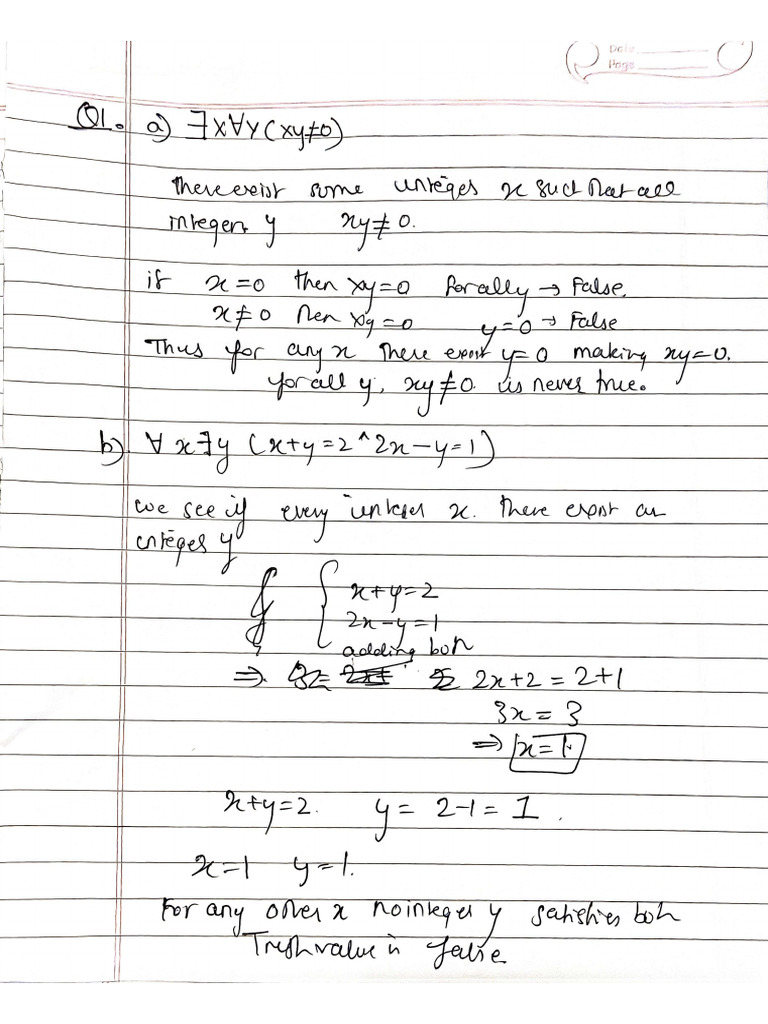 Date
Page
Q1. a) ∃x∀y(xy≠0)
There exist some integes x such that all
integers y xy≠0.
if x=0 then xy=0 for all y → False.
x≠0 then xy=0 y=0 → False
Thus for any x there exist y=0 making xy=0.
for all y, xy≠0 is never true.
b) ∀x∃y (x+y=2^2x-y=1)
we see if every integer x. there exist an
integes y
x+y=2
2x-y=1
adding both
⇒ 2x+2 = 2+1
3x = 3
⇒ x=1.
x+y=2. y = 2-1 = 1.
x=1 y=1.
For any other x no integer y satisfies both
Truth value is false